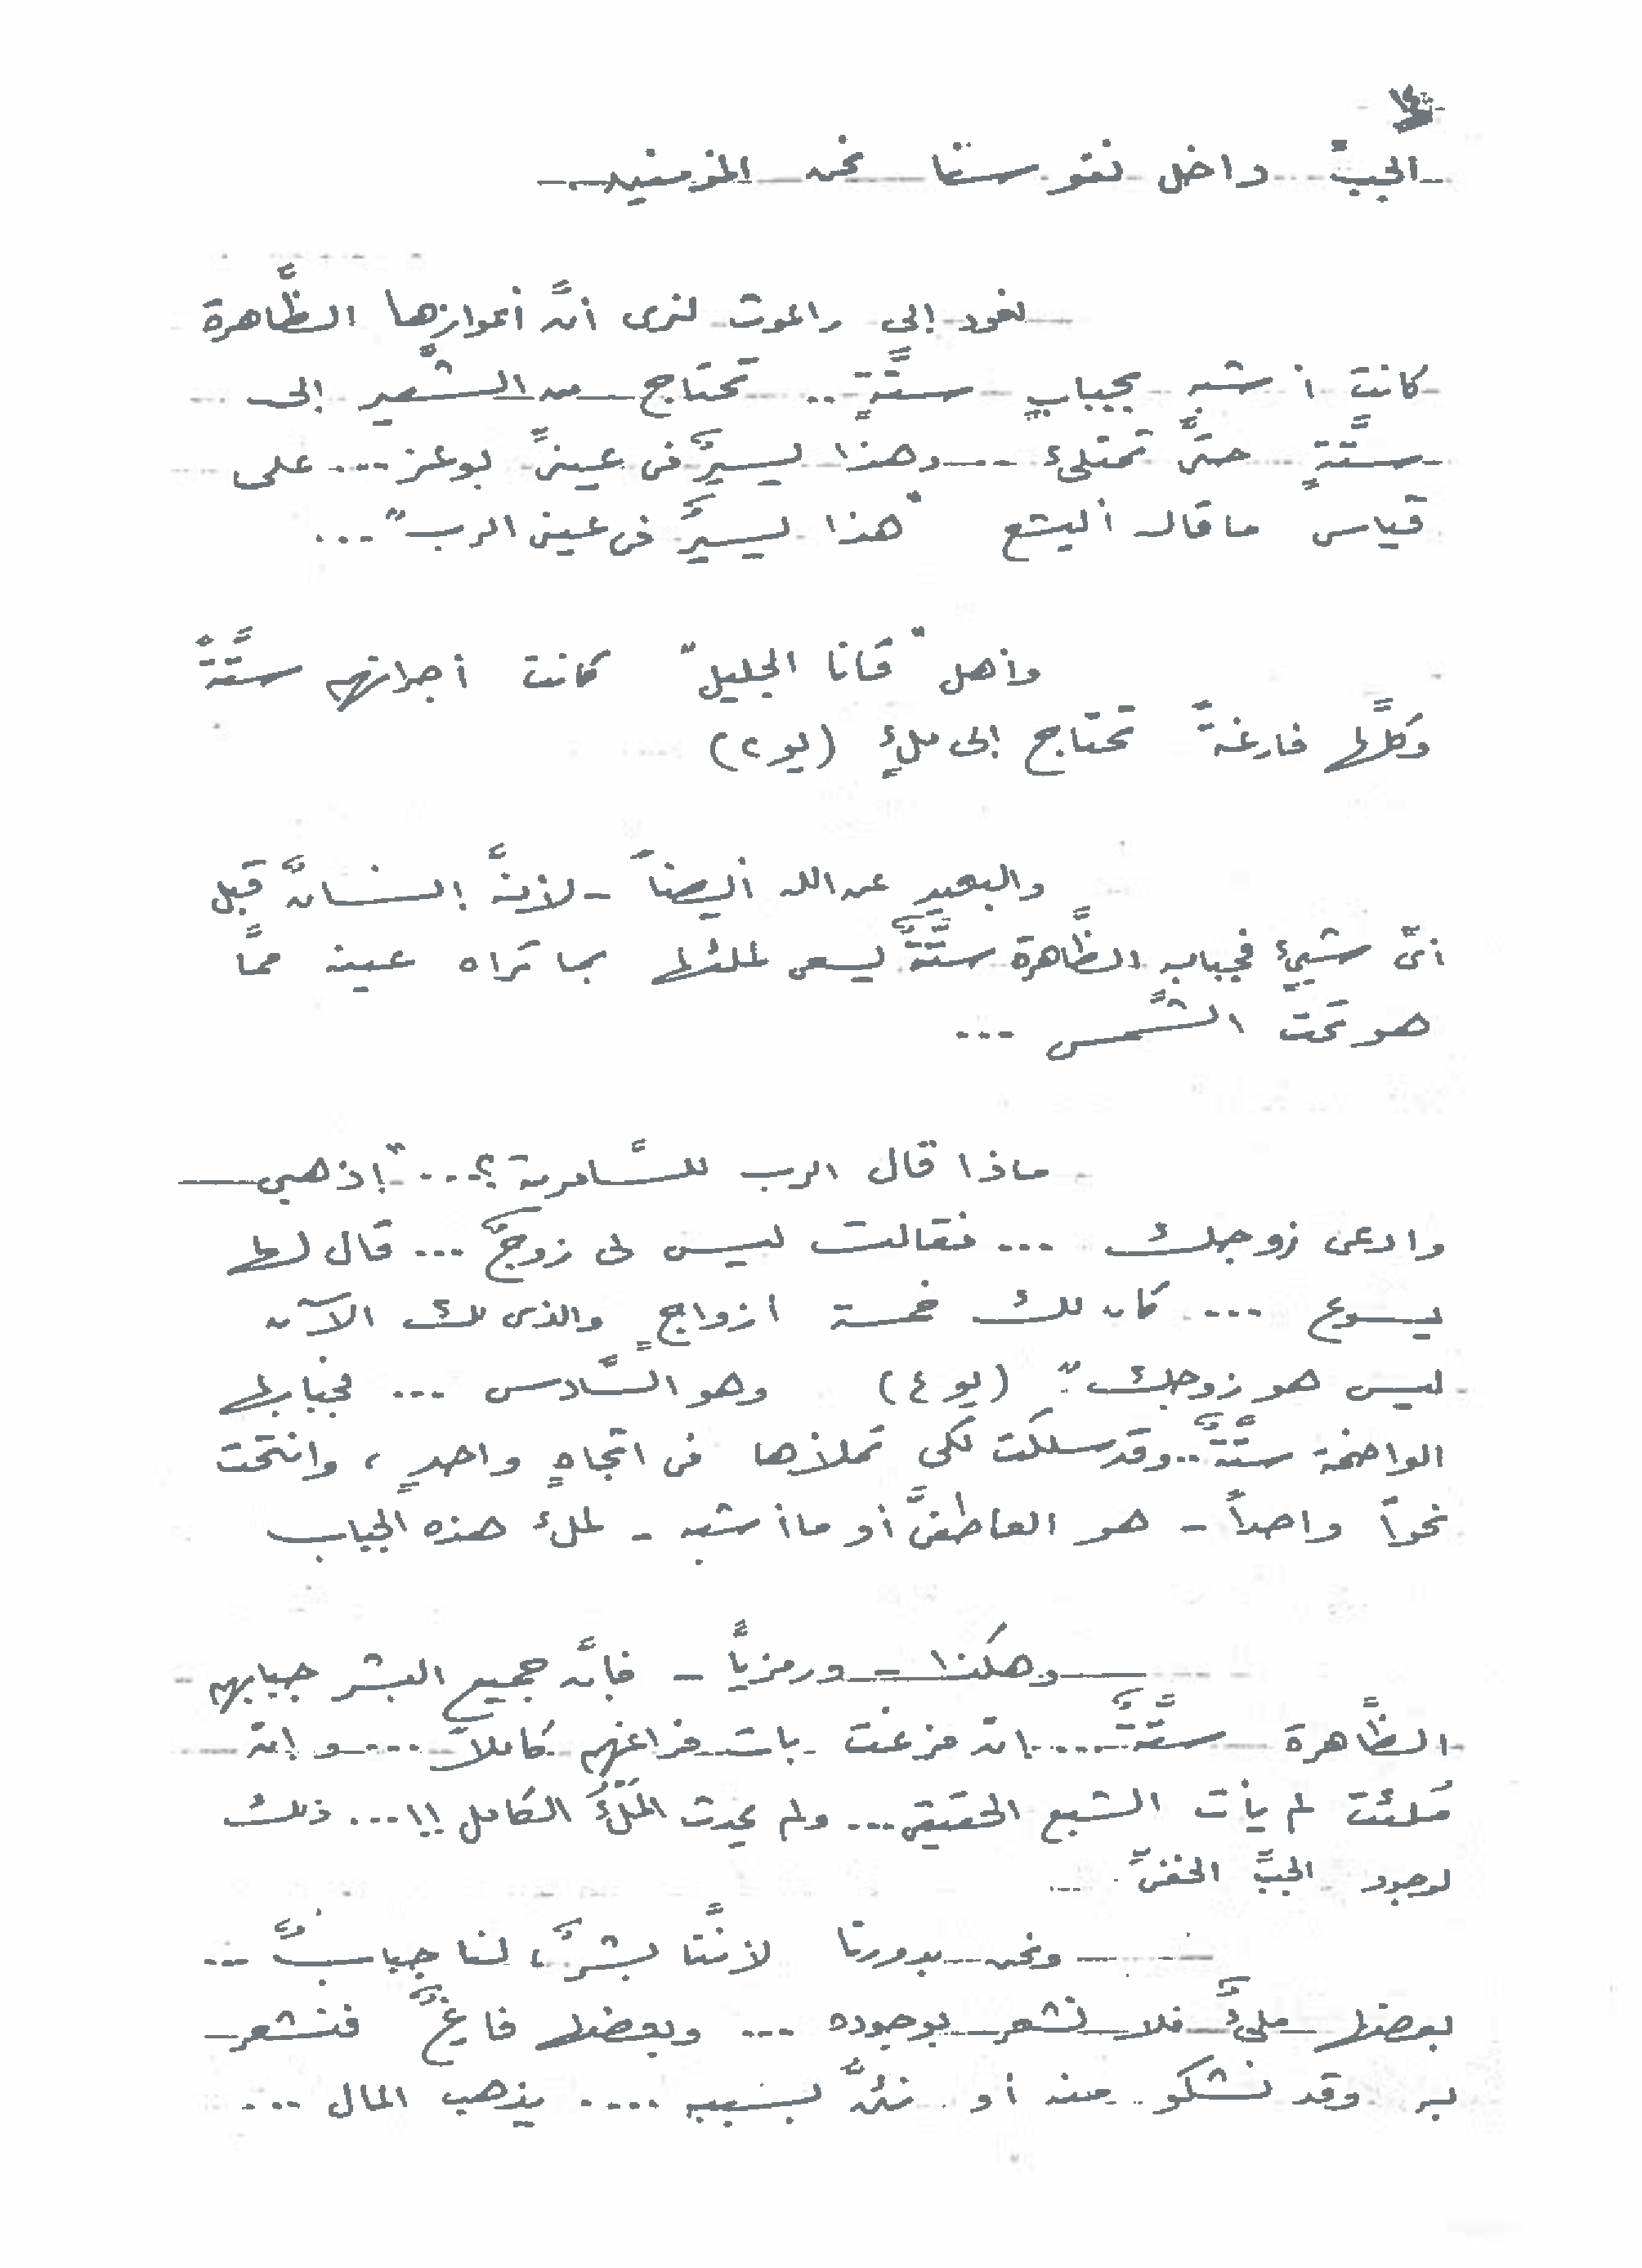 ١٤
الجبّ داخل نفوسنا نحن المؤمنين
لنعود إلى راعوث لنرى أنَّ أعوازها الظَّاهرة
كانت أشبه بجبابٍ ستَّةٍ .. تحتاج من الشَّعير إلى
ستَّةٍ حتىَّ تمتلئ ... وهذا يسيرٌ فى عينىّ بوعز ... على
قياس ما قاله أليشع "هذا يسيرٌ فى عينى الرب" ...
وأهل "قانا الجليل" كانت أجرانهم ستَّةٌ
وكلَّها فارغةً تحتاج إلى ملءٍ (يو ٢)
والبعيد عن الله أيضاً - لأنَّه إنسانٌ قبل
أىّ شيئ فجبابه الظَّاهرة ستَّةٌ يسعى لملئها بما تراه عينه ممَّا
هو تحت الشَّمس ...
ماذا قال الرب للسَّامرية ؟ ... "إذهبى
وادعى زوجك ... فقالت ليس لى زوجٌ ... قال لها
يسوع ... كان لك خمسة ازواجٍ والذى لك الآن
ليس هو زوجك". (يو ٤) وهو السَّادس ... فجبابها
الواضحة ستَّةٌ .. وقد سلكت لكى تملأها فى اتجاهٍ واحدٍ ، وانتحت
نحواً واحداً - هو العاطفىَّ أو ما أشبه - لملء هذه الجباب
وهكذا - ورمزيَّاً - فإنَّه جميع البشر جبابهم
الظَّاهرة ستَّةٌ .... إن فرغت بات فراغهم كاملاً .... وإن
مُلئت لم يأت الشبع الحقيقى ... ولم يحدث المَلْءُ الكامل !! ... ذلك
لوجود الجبِّ الخفىِّ ...
ونحن بدورنا لأنَّنا بشرٌ ، لنا جبابٌ ...
بعضها ملئٌ فلا نشعر بوجوده ... وبعضها فارغٌ فنشعر
به وقد نشكو منه أو نئنُّ بسببه .... يذهب المال ...